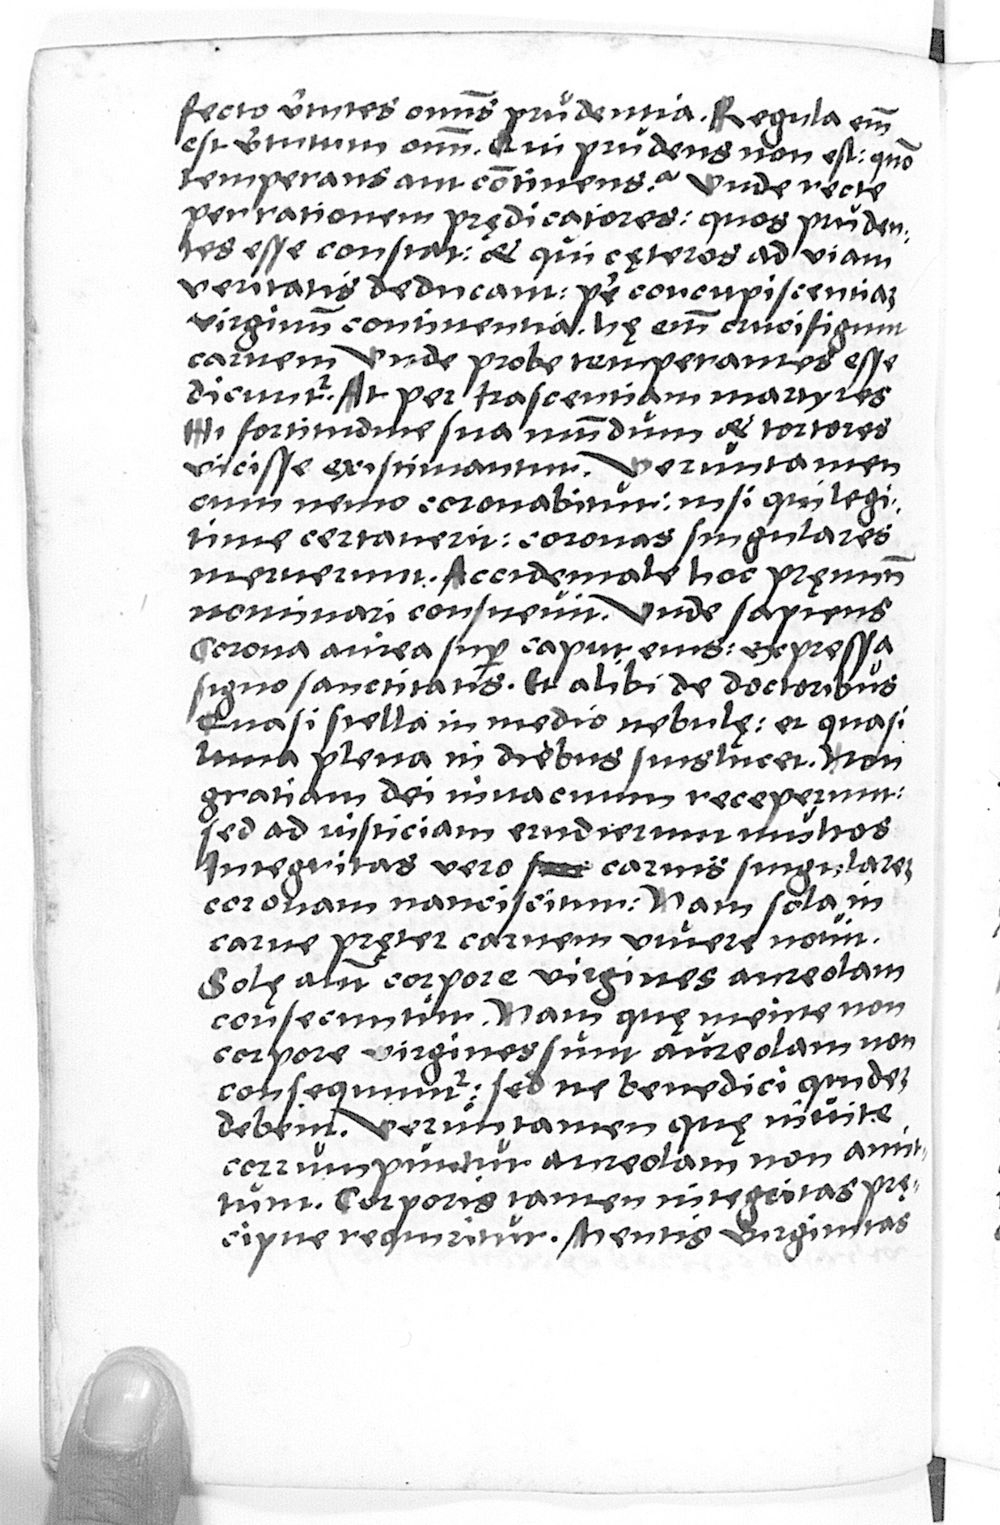 fecto v̄tutes omn̄s prudentia. Regula em̄
est v̄tutum omn̄. Qui prudens non est: quō
temperans aut cōtinens.ᵃ Vnde recte
per rationem prędicatores: quos pruden:
tes esse constat: & qui cęteros ad viam
veritatis deducant: pr̄e concupiscentiaȝ
virginū continentia. hę em̄ crucifigunt
carnem Vnde probe temperantes esse
dicuntʳ. At per irascentiam martyres
Hi fortitudine sua mūdum & tortores
vicisse existimantur. Veruntamen
cum nemo coronabitur: nisi qui legi:
time certauerit: coronas singulares
meruerunt. Accidentale hoc pręmiū
nominari consueuit. Vnde sapiens
Corona aurea sup̱ caput eius: expressa
signo sanctitatis. Et alibi de doctoribus
Quasi stella in medio nebulę: et quasi
luna plena in diebus suis lucet. Non
gratiam dei in uacuum receperunt:
sed ad iusticiam erudierunt multos
Integritas vero carnis singulareȝ
coronam nanciscitur: Nam sola in
carne pręter carnem viuere nouit.
Solę aut̄ corpore virgines aureolam
consecuntur. Nam quę mente non
corpore virgines sunt aureolam non
consequuntʳ: sed ne benedici quideȝ
debent. Veruntamen quę inuite
corrumpuntur aureolam non amit:
tunt. Corporis tamen integritas prę:
cipue requiritur. Mentis virginitas